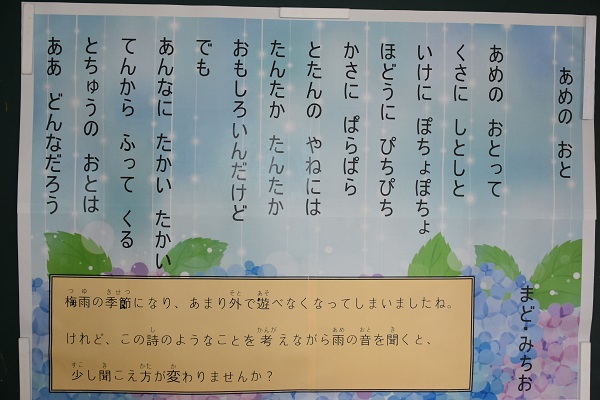 あめの おと
まど・みちお
あめの おとって
くさに しとしと
いけに ぽちょぽちょ
ほどうに ぴちぴち
かさに ぱらぱら
とたんの やねには
たんたか たんたか
おもしろいんだけど
でも
あんなに たかい たかい
てんから ふって くる
とちゅうの おとは
ああ どんなだろう
梅雨の季節になり、あまり外で遊べなくなってしまいましたね。
けれど、この詩のようなことを考えながら雨の音を聞くと、
少し聞こえ方が変わりませんか？